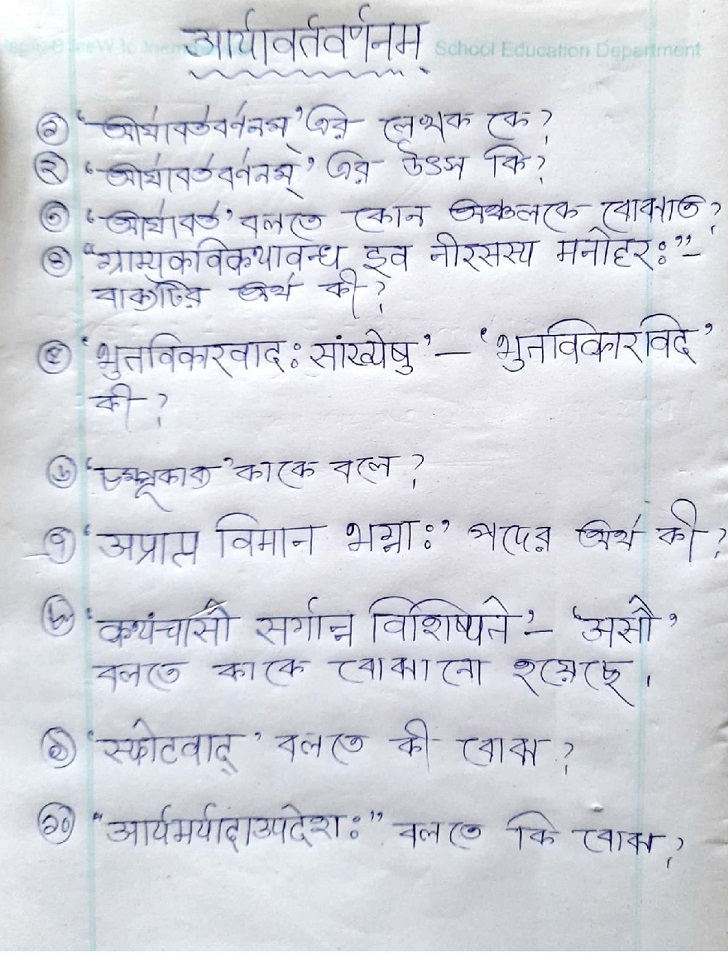 आर्यावर्तवर्णनम्
School Education Department
① 'আর্যাবর্তবর্ননম্' এর লেখক কে?
② 'আর্যাবর্তবর্ননম্' এর উৎস কি?
③ 'আর্যাবর্ত' বলতে কোন অঞ্চলকে বোঝাত?
④ "ग्राम्यकविकथावन्ध इव नीरसस्य मनोहरः" –
বাক্যটির অর্থ কী?
⑤ 'भुतविकारवादः सांख्येषु' – 'भुतविकारविद'
কী?
⑥ 'চম্পূকাব্য' কাকে বলে?
⑦ 'अप्राप्त विमान भग्नाः' পদের অর্থ কী?
⑧ 'कथंचासौ सर्गान्न विशिष्यते' – 'असौ'
বলতে কাকে বোঝানো হয়েছে।
⑨ 'स्फोटवाद्' বলতে কী বোঝ?
⑩ "आर्यमर्यादाउपदेशः" বলতে কি বোঝ?